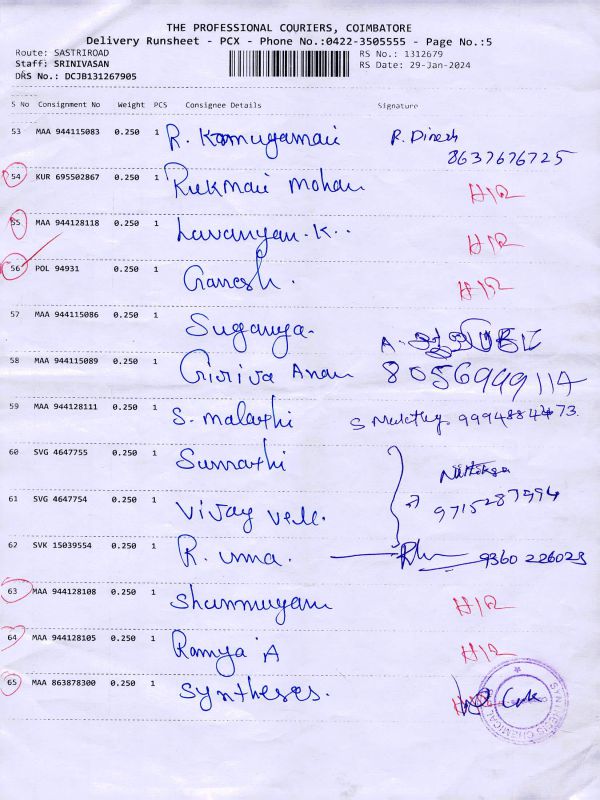 THE PROFESSIONAL COURIERS, COIMBATORE
Delivery Runsheet - PCX - Phone No.:0422-3505555 - Page No.:5
Route: SASTRIROAD RS No.: 1312679
Staff: SRINIVASAN RS Date: 29-Jan-2024
DRS No.: DCJB131267905
S No Consignment No Weight PCS Consignee Details Signature
53 MAA 944115083 0.250 1 R. Kamugamani R. Dinesh
8637676725
54 KUR 695502867 0.250 1 Rukmani Mohan H/R
55 MAA 944128118 0.250 1 Lavanyan.K.. H/R
56 POL 94931 0.250 1 Ganesh. H/R
57 MAA 944115086 0.250 1 Suganya. A.
58 MAA 944115089 0.250 1 Giriva Anan 8056999114
59 MAA 944128111 0.250 1 S. malathi S Malathy 9994884473
60 SVG 4647755 0.250 1 Sumathi
61 SVG 4647754 0.250 1 Vijay vell. 9715287994
62 SVK 15039554 0.250 1 R. uma. 9360226023
63 MAA 944128108 0.250 1 Shanmugam H/R
64 MAA 944128105 0.250 1 Ramya A H/R
65 MAA 863878300 0.250 1 Syntheses.